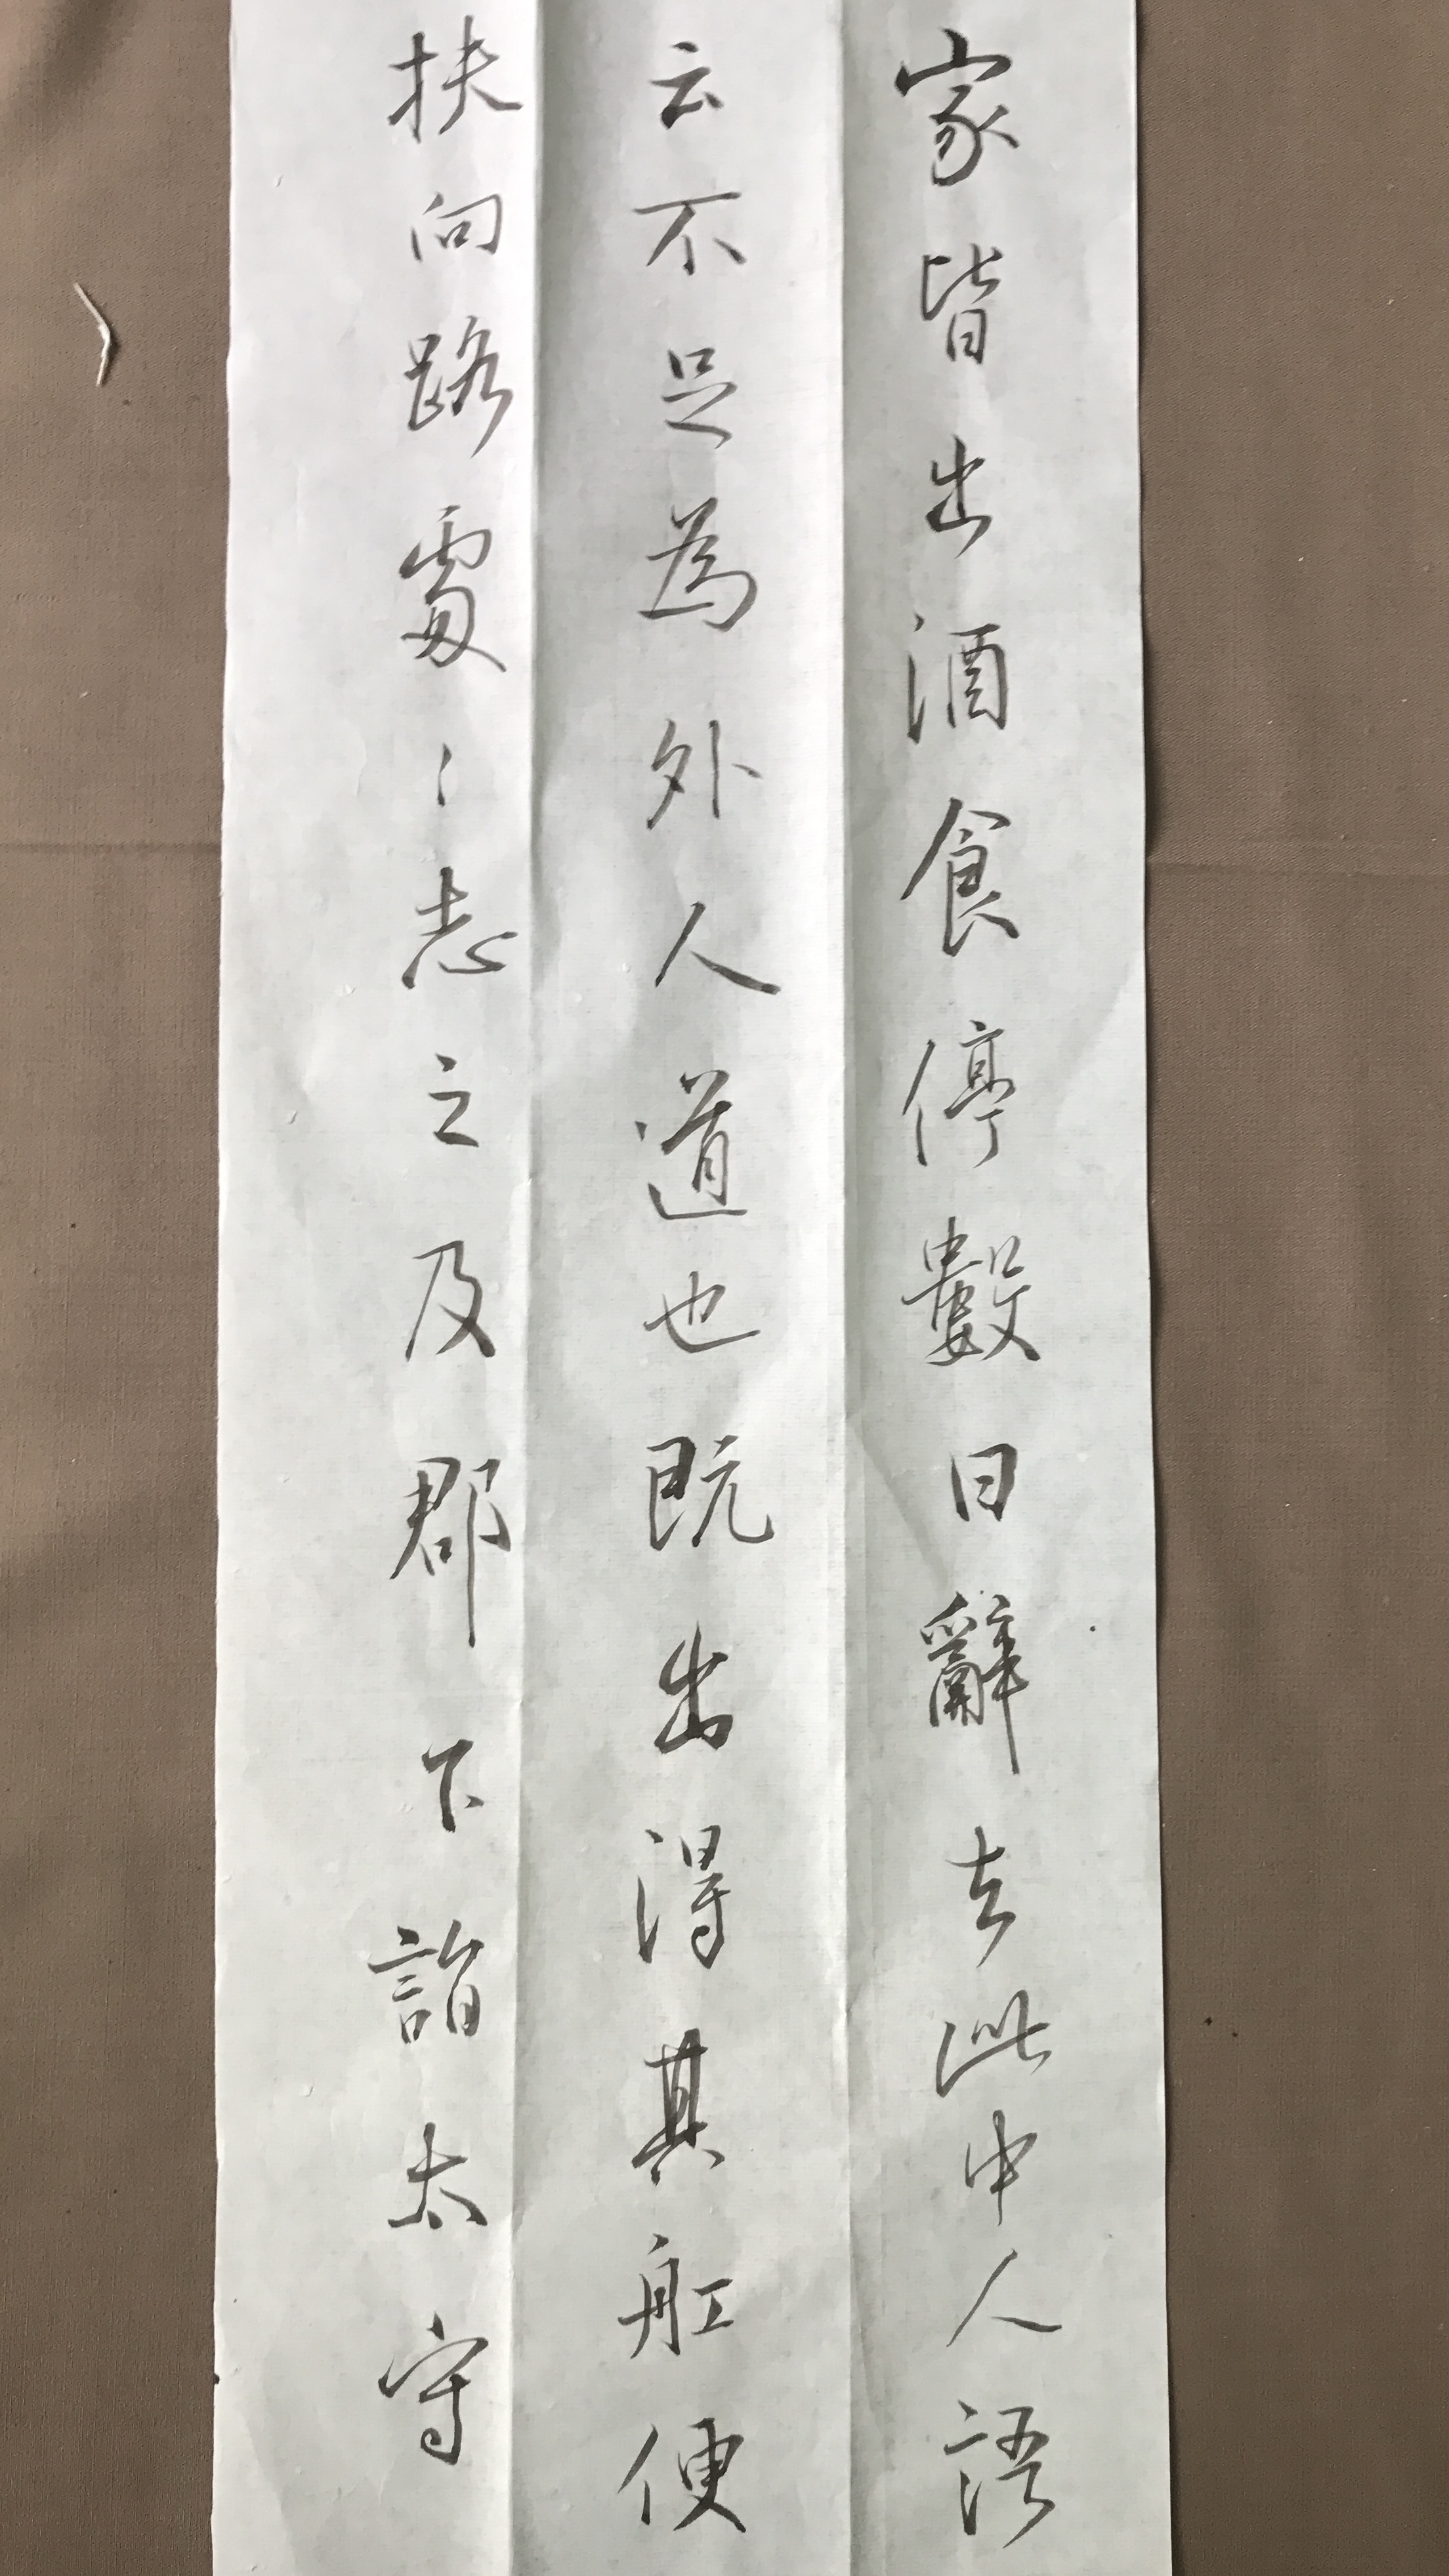 家皆出酒食停數日辭去此中人語
云不足為外人道也既出得其舡便
扶向路處〻志之及郡下詣太守